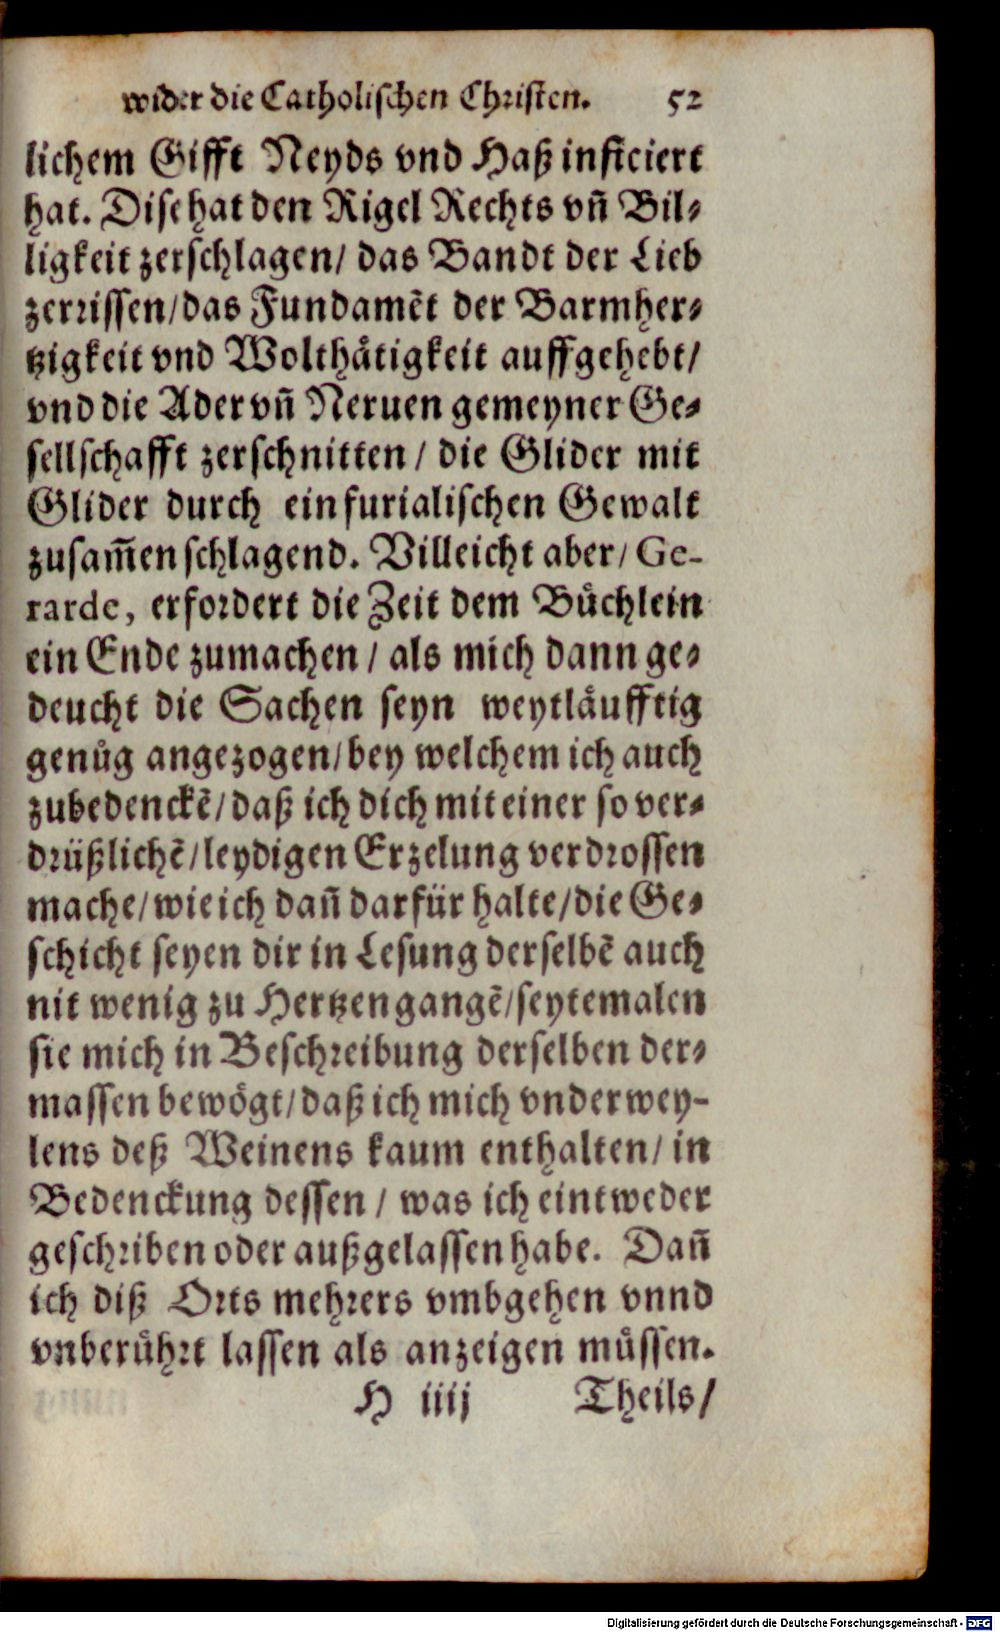 wider die Catholischen Christen. 52
lichem Gifft Neyds vnd Haß inficiert
hat. Dise hat den Rigel Rechts vñ Bil⸗
ligkeit zerschlagen/ das Bandt der Lieb
zerrissen/das Fundamẽt der Barmher⸗
tzigkeit vnd Wolthåtigkeit auffgehebt/
vnd die Ader vñ Neruen gemeyner Ge⸗
sellschafft zerschnitten / die Glider mit
Glider durch ein furialischen Gewalt
zusam̃en schlagend. Villeicht aber/ Ge-
rarde, erfordert die Zeit dem Bůchlein
ein Ende zumachen / als mich dann ge⸗
deucht die Sachen seyn weytlåufftig
genůg angezogen/bey welchem ich auch
zubedenckẽ/daß ich dich mit einer so ver⸗
drüßlichẽ/leydigen Erzelung verdrossen
mache/wie ich dañ darfür halte/die Ge⸗
schicht seyen dir in Lesung derselbẽ auch
nit wenig zu Hertzen gangẽ/seytemalen
sie mich in Beschreibung derselben der⸗
massen bewögt/daß ich mich vnderwey-
lens deß Weinens kaum enthalten/ in
Bedenckung dessen / was ich eintweder
geschriben oder außgelassen habe. Dañ
ich diß Orts mehrers vmbgehen vnnd
vnberührt lassen als anzeigen müssen.
H iiij Theils/
Digitalisierung gefördert durch die Deutsche Forschungsgemeinschaft - DFG